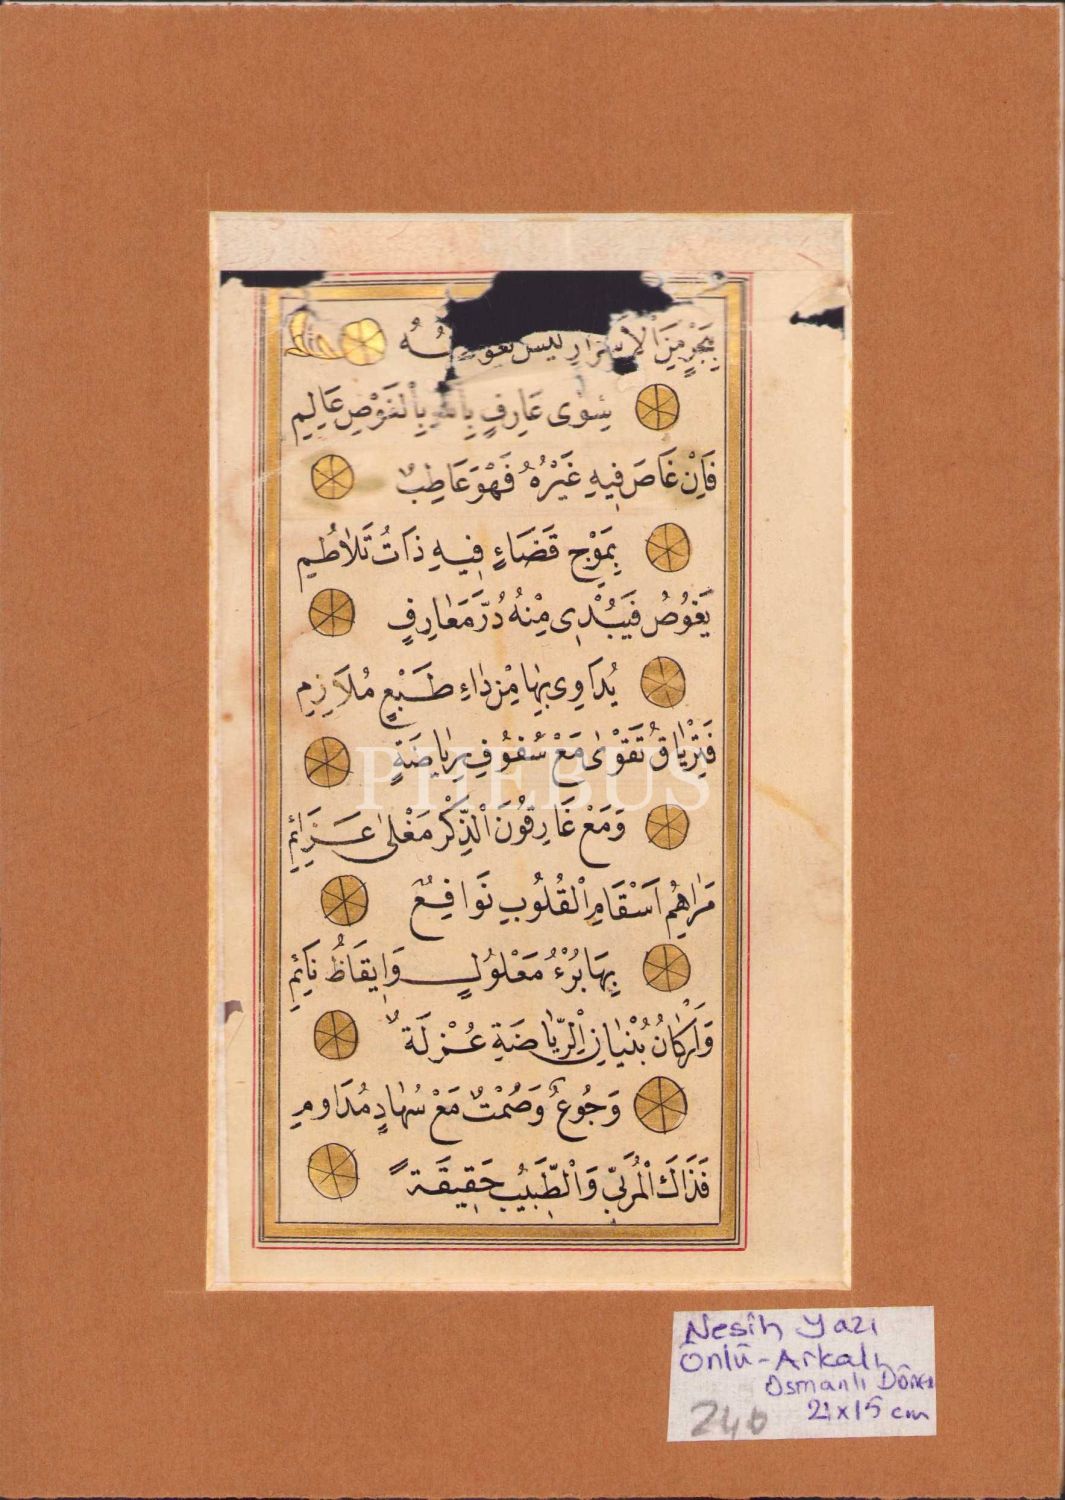 بِبَحْرٍ مِنَ الْاَسْرَارِ لَيْسَ
سِوٰى عَارِفٍ بِاللّٰهِ بِالْغَوْصِ عَالِمِ
فَاِنْ غَاصَ فِيهِ غَيْرُهُ فَهْوَ عَاطِبٌ
بِمَوْجِ قَضَاءٍ فِيهِ ذَاتُ تَلَاطُمِ
يَغُوصُ فَيُبْدِى مِنْهُ دُرَّ مَعَارِفٍ
يُدَاوِى بِهَا مِنْ دَاءِ طَبْعٍ مُلَازِمِ
فَتِرْيَاقُ تَقْوٰى مَعْ سُفُوفِ رِيَاضَةٍ
وَمَعْ غَارِقُونَ الذِّكْرِ مَغْلٰى عَزَائِمِ
مَرَاهِمُ اَسْقَامِ الْقُلُوبِ نَوَافِعٌ
بِهَا بُرْءُ مَعْلُولٍ وَاِيقَاظُ نَائِمِ
وَاَرْكَانُ بُنْيَانِ الرِّيَاضَةِ عُزْلَةٌ
وَجُوعٌ وَصُمْتٌ مَعْ سُهَادٍ مُدَاوِمِ
فَذَاكَ الْمُرَبِّي وَالطَّبِيبُ حَقِيقَةً
PHEBUS
Nesih Yazı
Önlü-Arkalı
Osmanlı Dönem
21x15 cm
240